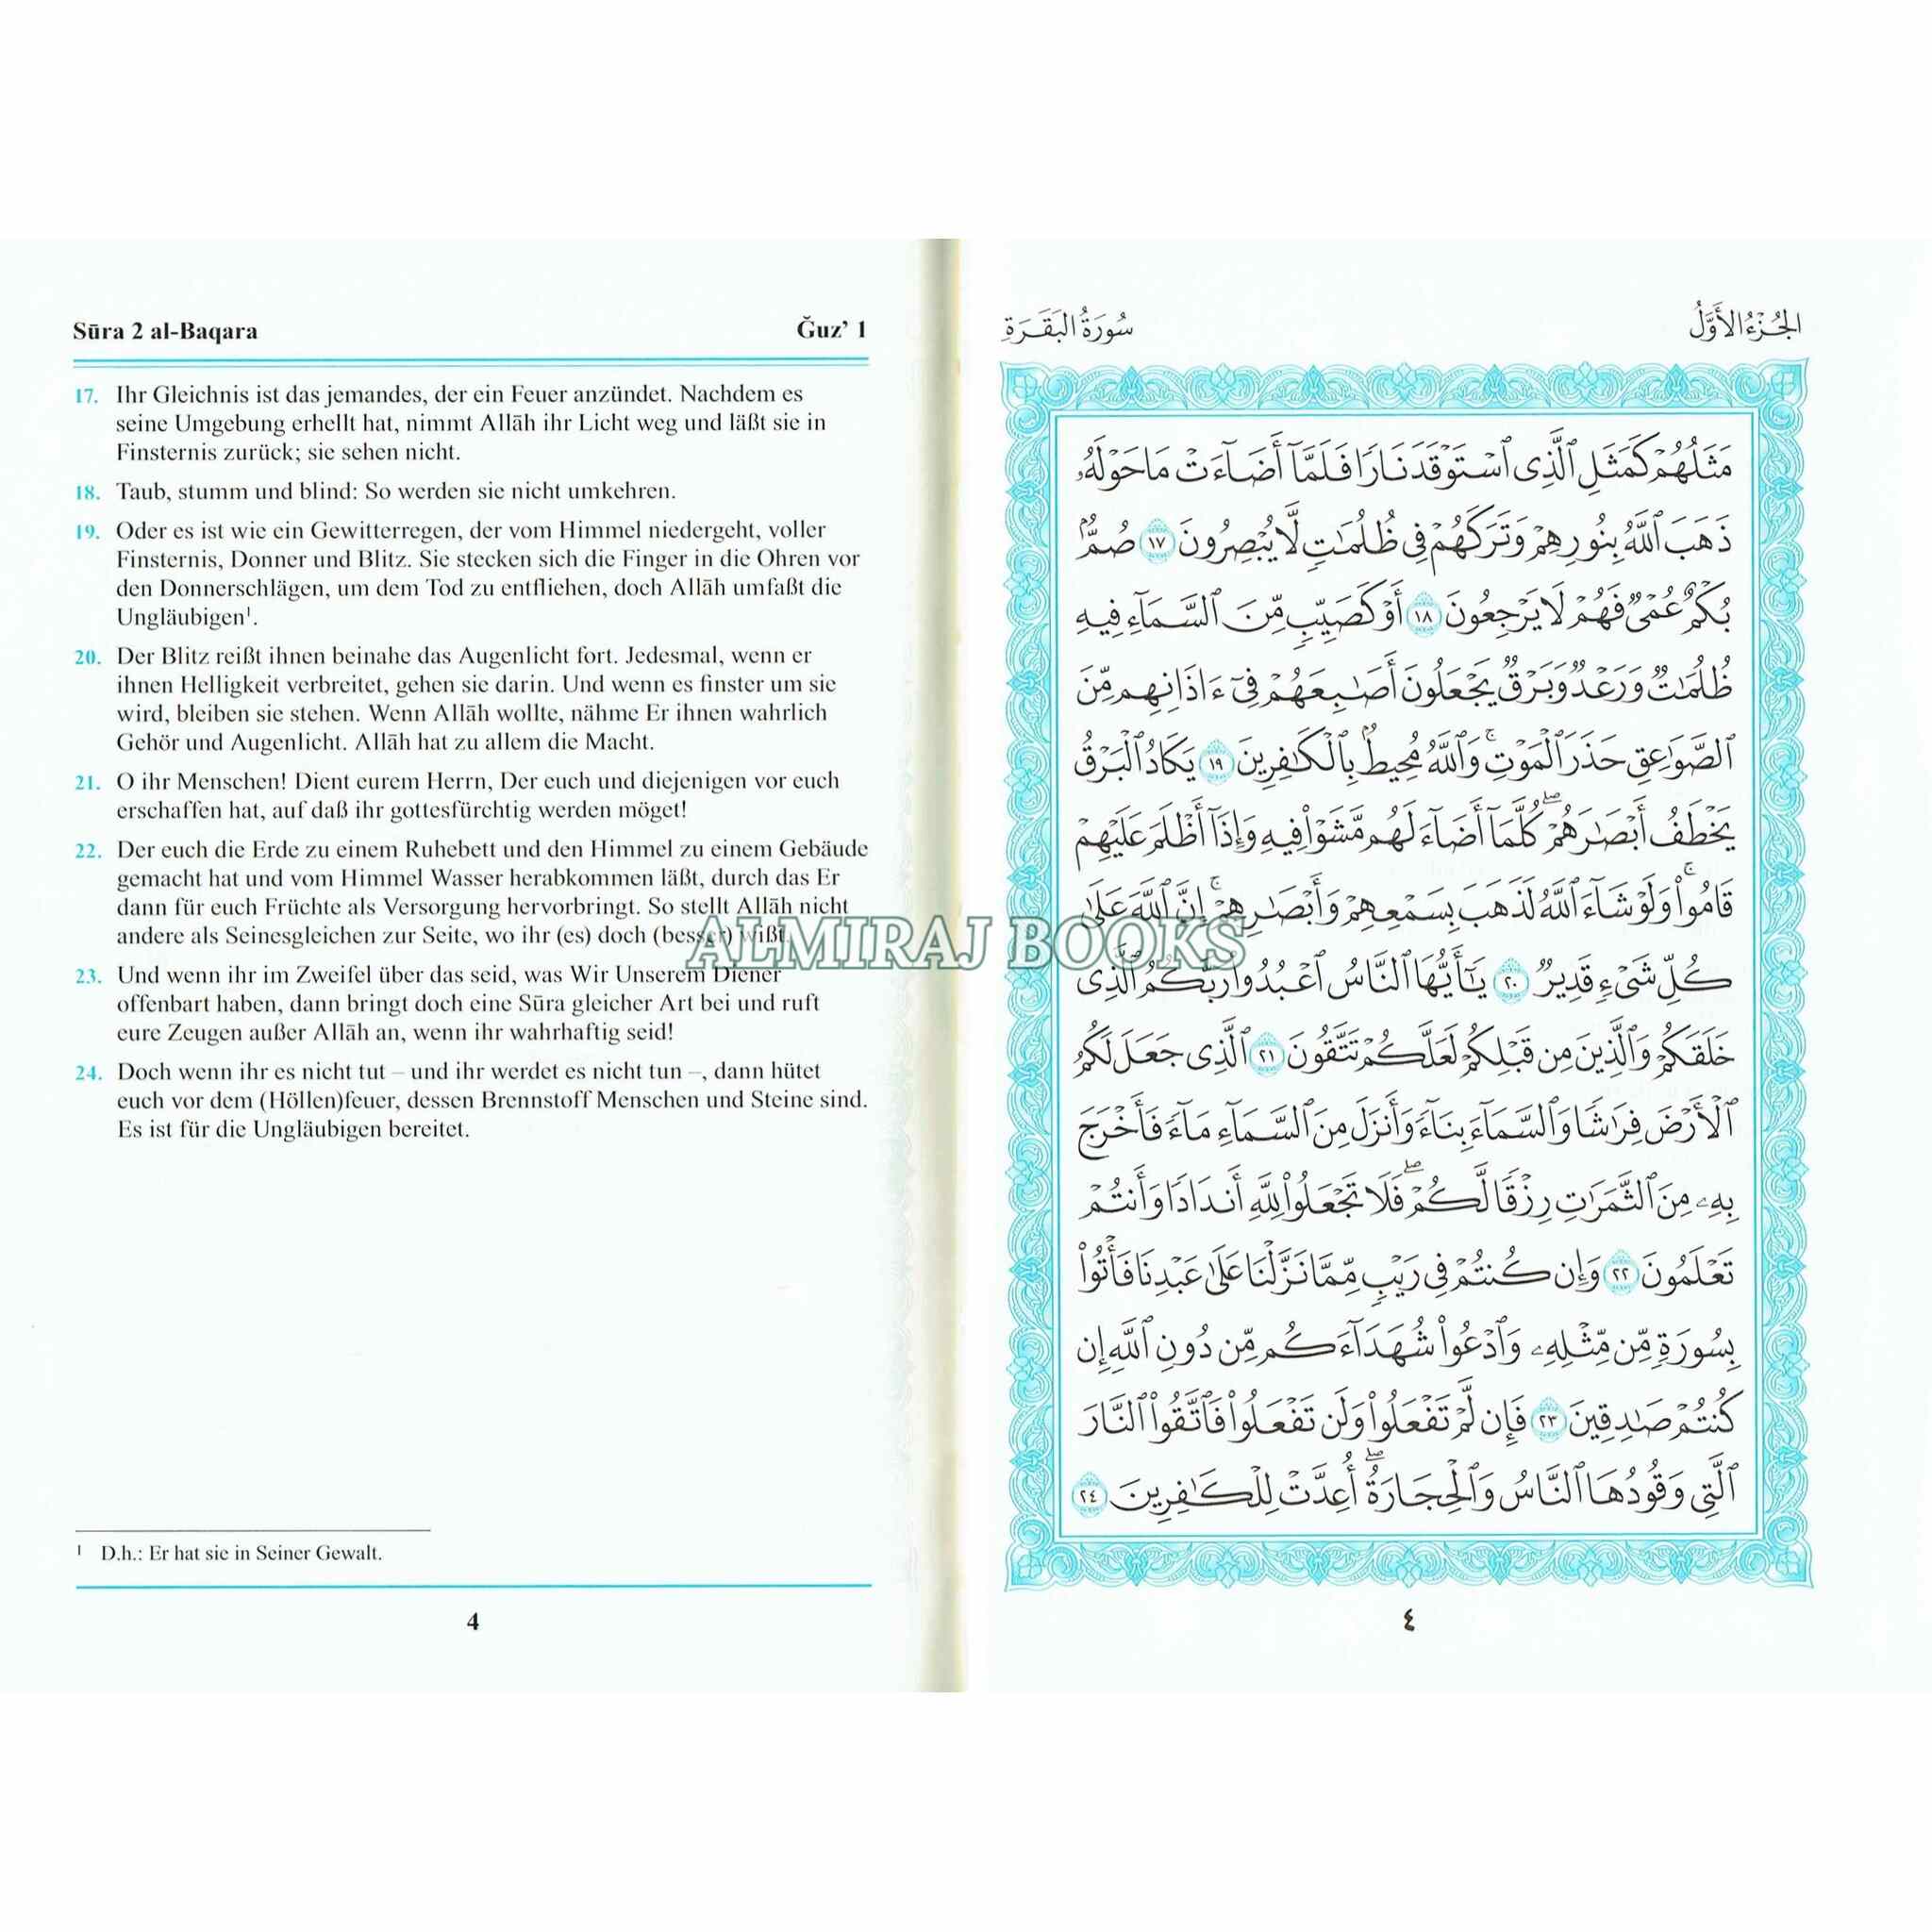 Sūra 2 al-Baqara
Ǧuz’ 1
17. Ihr Gleichnis ist das jemandes, der ein Feuer anzündet. Nachdem es
seine Umgebung erhellt hat, nimmt Allāh ihr Licht weg und läßt sie in
Finsternis zurück; sie sehen nicht.
18. Taub, stumm und blind: So werden sie nicht umkehren.
19. Oder es ist wie ein Gewitterregen, der vom Himmel niedergeht, voller
Finsternis, Donner und Blitz. Sie stecken sich die Finger in die Ohren vor
den Donnerschlägen, um dem Tod zu entfliehen, doch Allāh umfaßt die
Ungläubigen¹.
20. Der Blitz reißt ihnen beinahe das Augenlicht fort. Jedesmal, wenn er
ihnen Helligkeit verbreitet, gehen sie darin. Und wenn es finster um sie
wird, bleiben sie stehen. Wenn Allāh wollte, nähme Er ihnen wahrlich
Gehör und Augenlicht. Allāh hat zu allem die Macht.
21. O ihr Menschen! Dient eurem Herrn, Der euch und diejenigen vor euch
erschaffen hat, auf daß ihr gottesfürchtig werden möget!
22. Der euch die Erde zu einem Ruhebett und den Himmel zu einem Gebäude
gemacht hat und vom Himmel Wasser herabkommen läßt, durch das Er
dann für euch Früchte als Versorgung hervorbringt. So stellt Allāh nicht
andere als Seinesgleichen zur Seite, wo ihr (es) doch (besser) wißt.
23. Und wenn ihr im Zweifel über das seid, was Wir Unserem Diener
offenbart haben, dann bringt doch eine Sūra gleicher Art bei und ruft
eure Zeugen außer Allāh an, wenn ihr wahrhaftig seid!
24. Doch wenn ihr es nicht tut – und ihr werdet es nicht tun –, dann hütet
euch vor dem (Höllen)feuer, dessen Brennstoff Menschen und Steine sind.
Es ist für die Ungläubigen bereitet.
¹ D.h.: Er hat sie in Seiner Gewalt.
4
ALMIRAJ BOOKS
الجُزْءُ الأَوَّلُ
سُورَةُ البَقَرَةِ
مَثَلُهُمْ كَمَثَلِ ٱلَّذِى ٱسْتَوْقَدَ نَارًا فَلَمَّآ أَضَآءَتْ مَا حَوْلَهُۥ
ذَهَبَ ٱللَّهُ بِنُورِهِمْ وَتَرَكَهُمْ فِى ظُلُمَٰتٍ لَّا يُبْصِرُونَ ١٧ صُمٌّۢ
بُكْمٌ عُمْىٌ فَهُمْ لَا يَرْجِعُونَ ١٨ أَوْ كَصَيِّبٍ مِّنَ ٱلسَّمَآءِ فِيهِ
ظُلُمَٰتٌ وَرَعْدٌ وَبَرْقٌ يَجْعَلُونَ أَصَٰبِعَهُمْ فِىٓ ءَاذَانِهِم مِّنَ
ٱلصَّوَٰعِقِ حَذَرَ ٱلْمَوْتِ ۚ وَٱللَّهُ مُحِيطٌۢ بِٱلْكَٰفِرِينَ ١٩ يَكَادُ ٱلْبَرْقُ
يَخْطَفُ أَبْصَٰرَهُمْ ۖ كُلَّمَآ أَضَآءَ لَهُم مَّشَوْا۟ فِيهِ وَإِذَآ أَظْلَمَ عَلَيْهِمْ
قَامُوا۟ ۚ وَلَوْ شَآءَ ٱللَّهُ لَذَهَبَ بِسَمْعِهِمْ وَأَبْصَٰرِهِمْ ۚ إِنَّ ٱللَّهَ عَلَىٰ
كُلِّ شَىْءٍ قَدِيرٌ ٢٠ يَٰٓأَيُّهَا ٱلنَّاسُ ٱعْبُدُوا۟ رَبَّكُمُ ٱلَّذِى
خَلَقَكُمْ وَٱلَّذِينَ مِن قَبْلِكُمْ لَعَلَّكُمْ تَتَّقُونَ ٢١ ٱلَّذِى جَعَلَ لَكُمُ
ٱلْأَرْضَ فِرَٰشًا وَٱلسَّمَآءَ بِنَآءً وَأَنزَلَ مِنَ ٱلسَّمَآءِ مَآءً فَأَخْرَجَ
بِهِۦ مِنَ ٱلثَّمَرَٰتِ رِزْقًا لَّكُمْ ۖ فَلَا تَجْعَلُوا۟ لِلَّهِ أَندَادًا وَأَنتُمْ
تَعْلَمُونَ ٢٢ وَإِن كُنتُمْ فِى رَيْبٍ مِّمَّا نَزَّلْنَا عَلَىٰ عَبْدِنَا فَأْتُوا۟
بِسُورَةٍ مِّن مِّثْلِهِۦ وَٱدْعُوا۟ شُهَدَآءَكُم مِّن دُونِ ٱللَّهِ إِن
كُنتُمْ صَٰدِقِينَ ٢٣ فَإِن لَّمْ تَفْعَلُوا۟ وَلَن تَفْعَلُوا۟ فَٱتَّقُوا۟ ٱلنَّارَ
ٱلَّتِى وَقُودُهَا ٱلنَّاسُ وَٱلْحِجَارَةُ ۖ أُعِدَّتْ لِلْكَٰفِرِينَ ٢٤
٤